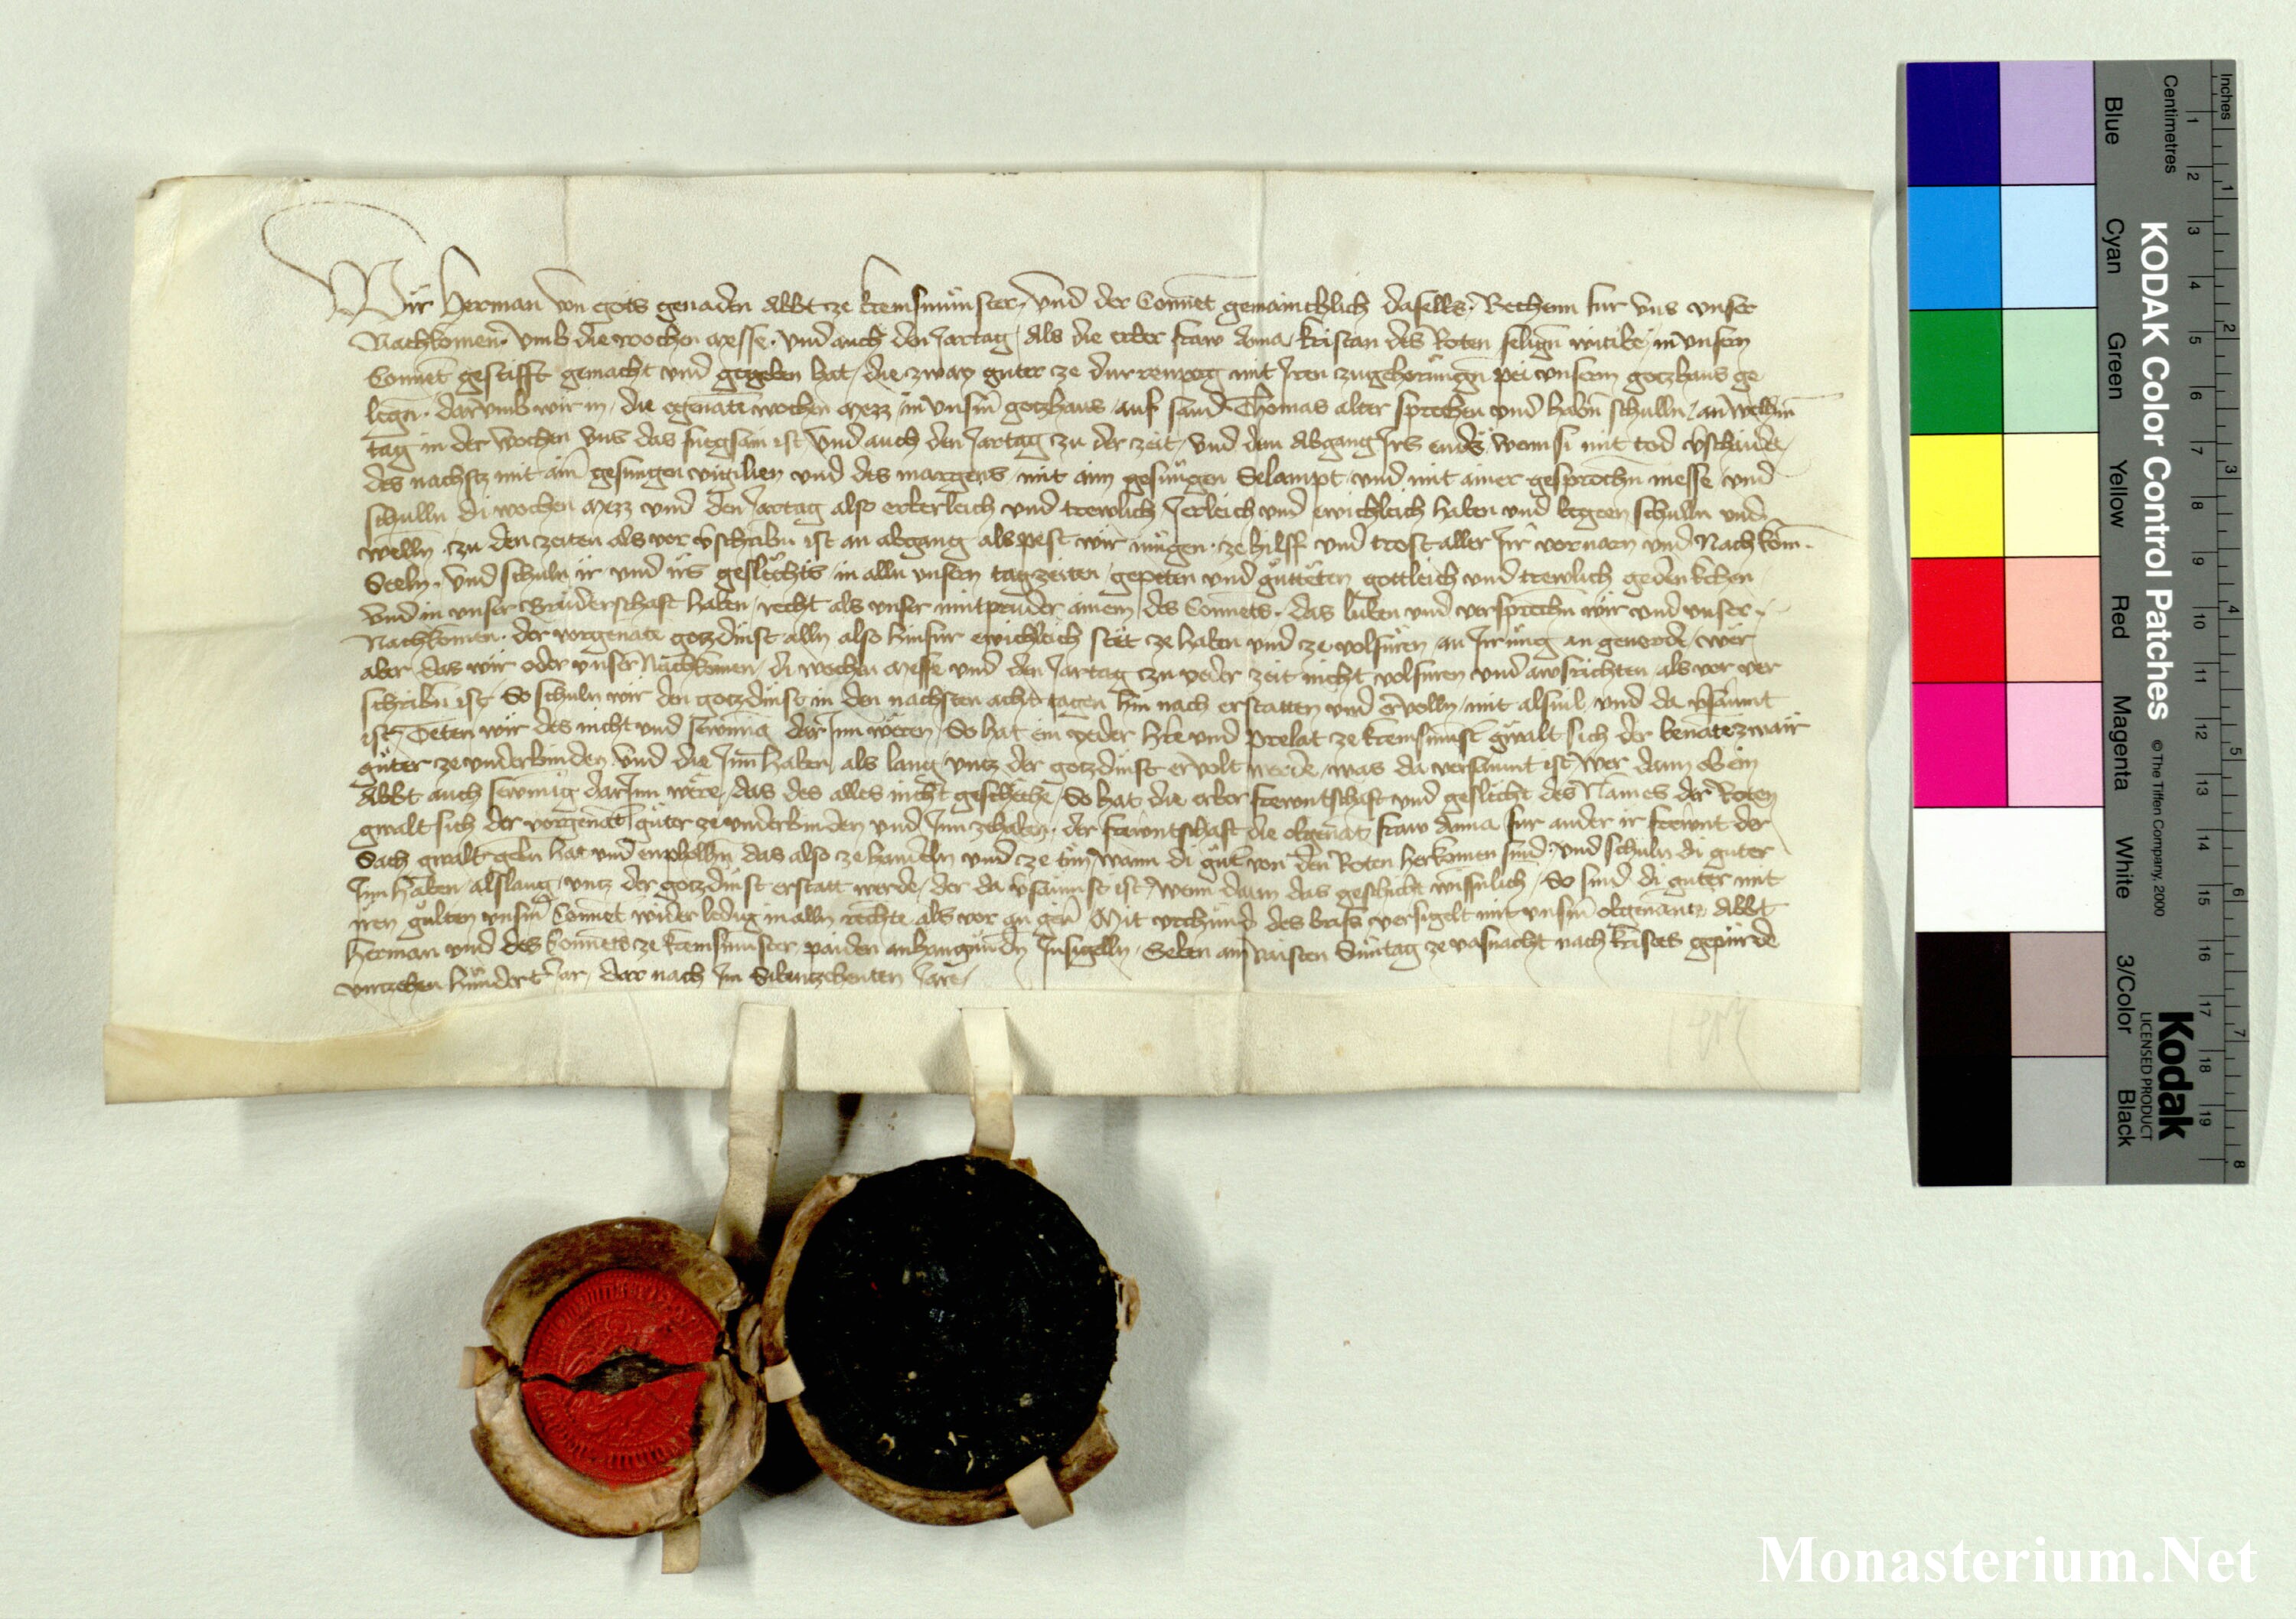 Wir Herman von gots genaden Abbt ze Kremsmünster, Vnd der Conuet gemainchlich daselbs, Vechenn fur vns vnser
Nachkomen, vmb die wochen messe, vnd auch den Jartag, Als die erber fraw Anna, kristan des Roten seligñ witibe, in vnserm
Conuet gestifft gemacht vnd gegeben hat, die zway guter ze durrenperg mit Jren zugehorungñ pei vnserm gotzhaus ge
legñ. darvmb wir in, die egenāte wochen mezz, in vnsm̄ gotzhaus, auf sand Thomas alter sprechen vnd habñ schulln, an wellm̄
tag in der wochen vns das fuegsam ist, Vnd auch den Jartag zu der zeit, vnd dem Abgang Jrs ends, wenn si mit tod v̄schaidet,
des nachtz mit aim̄ gesungen vigilien vnd des margens, mit aim gesungen Selampt, vnd mit ainer gesprochñ messe, vnd
schulln di wochen mezz vnd den Jartag also erberleich vnd trewlich Jerleich vnd ewichleich haben vnd begeen schulln vnd
welln, zu den zeiten als vor v̄schribñ ist an abgang als pest wir mugen, ze hilff vnd trost aller Jr̄ vorvarn vnd Nachkom̄.
Seeln. Vnd schuln ir vnd irs geslechts, in alln vnsern tagzeiten, gepeten vnd gutteten gottleich vnd trewlich gedenkchen
Vnd in vnser Bruderschaft haben, recht als vnser mitpruder ainem, des Conuets. das luben vnd versprechñ wir vnd vnser
Nachkomen. der vorgenāte gotzdinst alln also hinfur ewichleich stet ze haben vnd ze volfuren, an Jrrung an geuerde, wer
aber das wir oder vnser Nachkomen, di wochen messe vnd den Jartag zu yeder zeit nicht volfuren vnd awsrichten, als vor ver
schribñ ist, So schuln wir den gotzdinst in den nachsten acht tagen hin nach erstatten vnd ervolln, mit alsuil, vnd da v̄saumt
ist, Teten wir des nicht vnd sewmig dar Jnn weren, So hat ein yeder herr vnd Prelat ze kremsmūst̄ gwalt sich der benātē zwair
guter ze vnderbinden Vnd die Jnn haben, als lang, vntz der gotzdinst ervolt werde, was da versaumt ist, Wer dann ob ein
Abbt auch sewmig dar Jnn were, das des alles nicht geschehe, So hat die erber frewntschaft vnd geslecht des Names der Roten
gwalt sich der vorgenāt guter ze vnderbinden vnd Jnn ze haben, der frewntschaft die obgenāt fraw Anna fur ander ir frewnt der
Sach gwalt gebñ hat vnd enpholhñ das also ze handeln vnd ze tun, wann di gut̄ von den Roten herkomen sind. Vnd schuln di guter
Jnn haben, alslang, vntz der gotzdinst erstatt werde, der da v̄saumt ist, wenn dann das geschicht wissnlich, So sind di guter mit
iren gulten vnsm̄ Conuet wider ledig in alln rechtē als vor an geu̇. Mit vrchund des briefs versigelt mit vnsm̄ obgenantz Abbt
Herman vnd des konuets ze kremsmūnster, paiden anhangundñ Jnsigelln, Geben am vaisten Suntag ze vasnacht nach krists gepurde
virczehen hundert Jar, dar nach Jm Sibentzehenten Jare,
Inches
Centimetres
KODAK Color Control Patches
© The Tiffen Company, 2000
Kodak
LICENSED PRODUCT
Blue
Cyan
Green
Yellow
Red
Magenta
White
3/Color
Black
1 2 3 4 5 6 7 8 9 10 11 12 13 14 15 16 17 18 19
1 2 3 4 5 6 7 8
Monasterium.Net